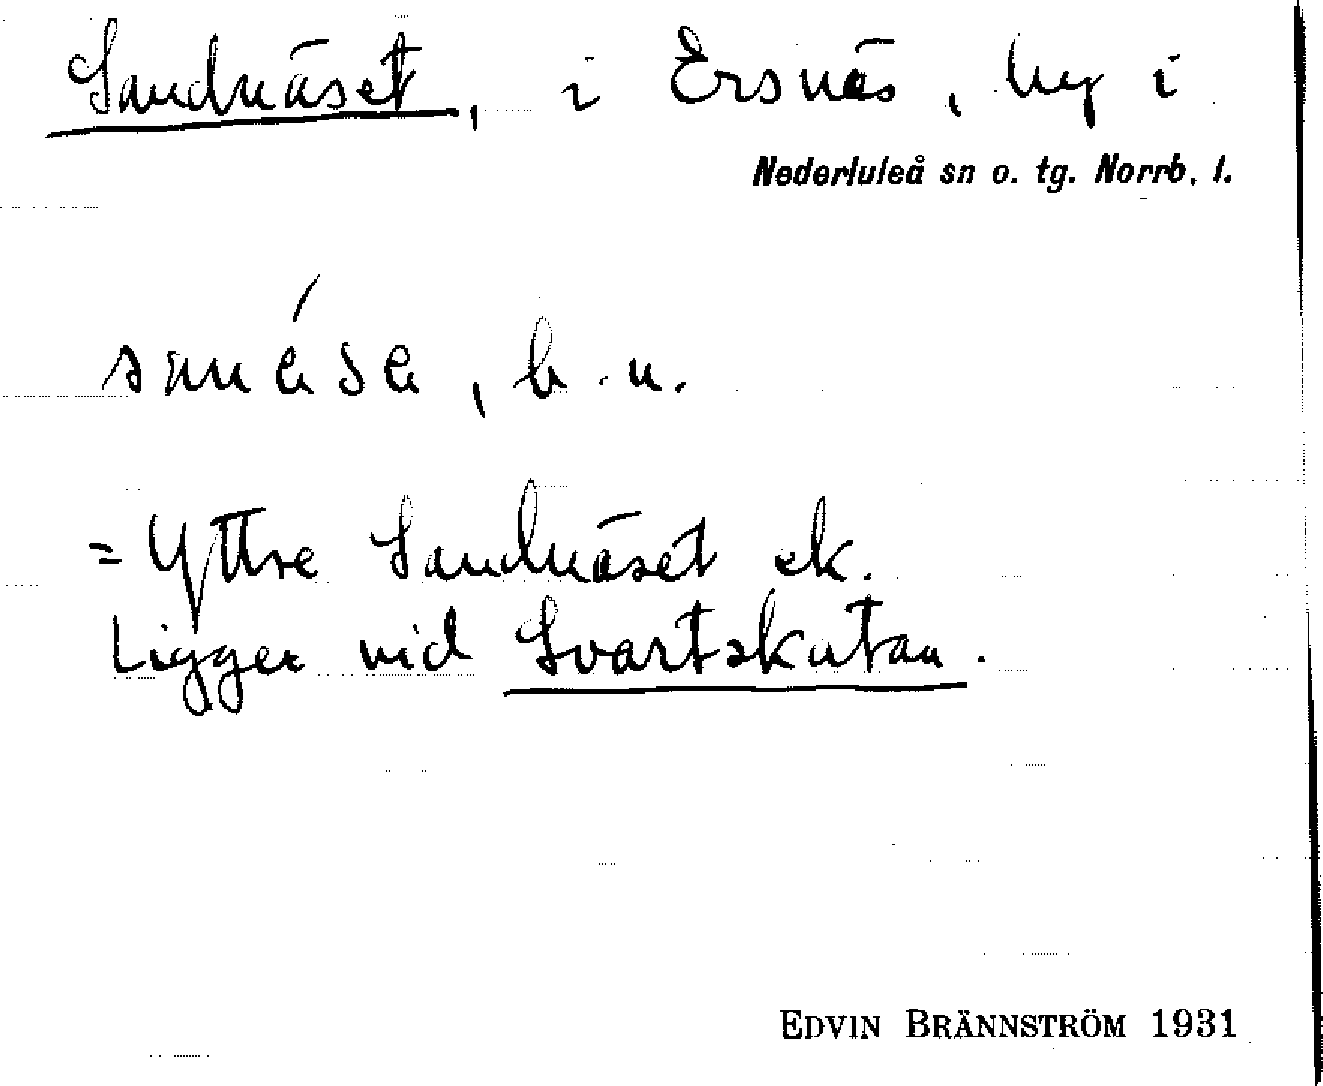 Sandnäset, i Ersnäs, by i
Nederluleå sn o. tg. Norrb. l.
b. u.
= Yttre Sandnäset ek.
Ligger vid Svartskatan.
EDVIN BRÄNNSTRÖM 1931